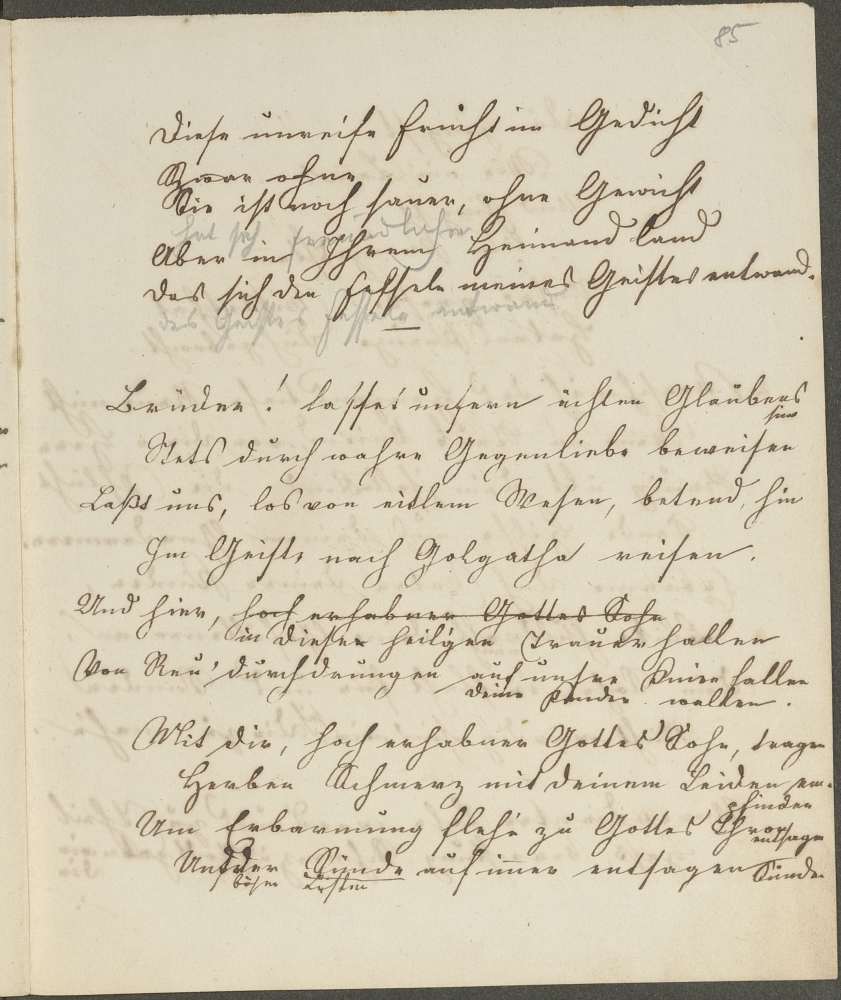 85
Diese unreife Frucht im Gedicht
Zwar ohne
Sie ist noch sauer, ohne Gewicht
hat sich
Aber in Ihrem Heimand land
Das sich den Fesseln meines Geistes entwand.
des Geistes Fesseln entwand
Brüder! lasset unsern ächten Glaubens
sinn
Stets durch wahre Gegenliebe beweisen
Laßt uns, los von eitlem Wesen, betend, hin
Im Geiste nach Golgatha reisen.
Und hier, hoch erhabner Gottes Sohn
in diesen heil'gen Trauerhallen
Von Reu' durchdrungen auf unsre Kniee fallen
deine Kinder wallen.
Mit dir, hoch erhabner Gottes Sohn, tragen
Herben Schmerz mit deinem Leiden em-
pfinden
Um Erbarmung fleh'n zu Gottes Thron
entsagen
Und der Sünde auf immer entsagen Sünden
bösen Lüsten